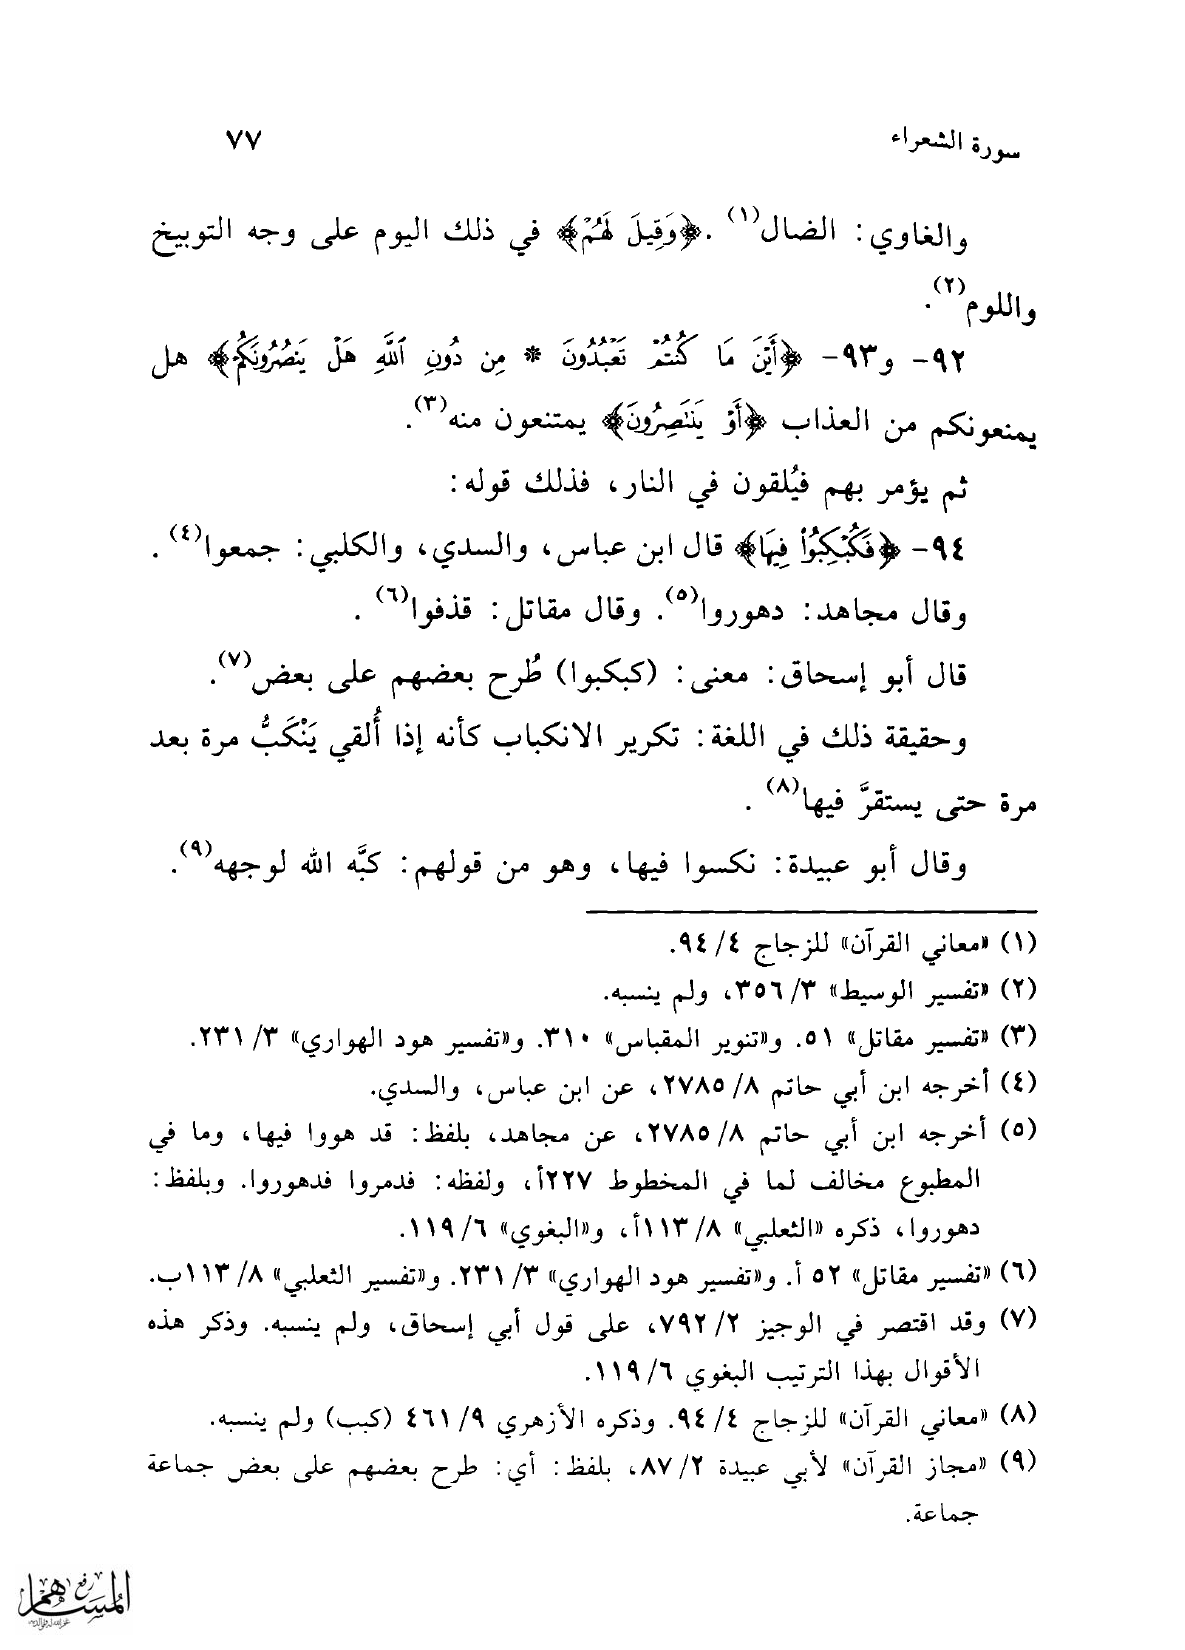 سورة الشعراء
٧٧
والغاوي: الضال(١) .﴿وَقِيلَ لَهُمْ﴾ في ذلك اليوم على وجه التوبيخ
واللوم(٢).
٩٢- و٩٣- ﴿أَيْنَ مَا كُنتُمْ تَعْبُدُونَ * مِن دُونِ ٱللَّهِ هَلْ يَنصُرُونَكُمْ﴾ هل
يمنعونكم من العذاب ﴿أَوْ يَنتَصِرُونَ﴾ يمتنعون منه(٣).
ثم يؤمر بهم فيُلقون في النار، فذلك قوله:
٩٤- ﴿فَكُبْكِبُوا۟ فِيهَا﴾ قال ابن عباس، والسدي، والكلبي: جمعوا(٤) .
وقال مجاهد: دهوروا(٥). وقال مقاتل: قذفوا(٦) .
قال أبو إسحاق: معنى: (كبكبوا) طُرح بعضهم على بعض(٧).
وحقيقة ذلك في اللغة: تكرير الانكباب كأنه إذا أُلقي يَنْكَبُّ مرة بعد
مرة حتى يستقرَّ فيها(٨) .
وقال أبو عبيدة: نكسوا فيها، وهو من قولهم: كبَّه الله لوجهه(٩).
(١) «معاني القرآن» للزجاج ٤/ ٩٤.
(٢) «تفسير الوسيط» ٣/ ٣٥٦، ولم ينسبه.
(٣) «تفسير مقاتل» ٥١. و«تنوير المقباس» ٣١٠. و«تفسير هود الهواري» ٣/ ٢٣١.
(٤) أخرجه ابن أبي حاتم ٨/ ٢٧٨٥، عن ابن عباس، والسدي.
(٥) أخرجه ابن أبي حاتم ٨/ ٢٧٨٥، عن مجاهد، بلفظ: قد هووا فيها، وما في
المطبوع مخالف لما في المخطوط ٢٢٧أ، ولفظه: فدمروا فدهوروا. وبلفظ:
دهوروا، ذكره «الثعلبي» ٨/ ١١٣أ، و«البغوي» ٦/ ١١٩.
(٦) «تفسير مقاتل» ٥٢ أ. و«تفسير هود الهواري» ٣/ ٢٣١. و«تفسير الثعلبي» ٨/ ١١٣ب.
(٧) وقد اقتصر في الوجيز ٢/ ٧٩٢، على قول أبي إسحاق، ولم ينسبه. وذكر هذه
الأقوال بهذا الترتيب البغوي ٦/ ١١٩.
(٨) «معاني القرآن» للزجاج ٤/ ٩٤. وذكره الأزهري ٩/ ٤٦١ (كبب) ولم ينسبه.
(٩) «مجاز القرآن» لأبي عبيدة ٢/ ٨٧، بلفظ: أي: طرح بعضهم على بعض جماعة
جماعة.